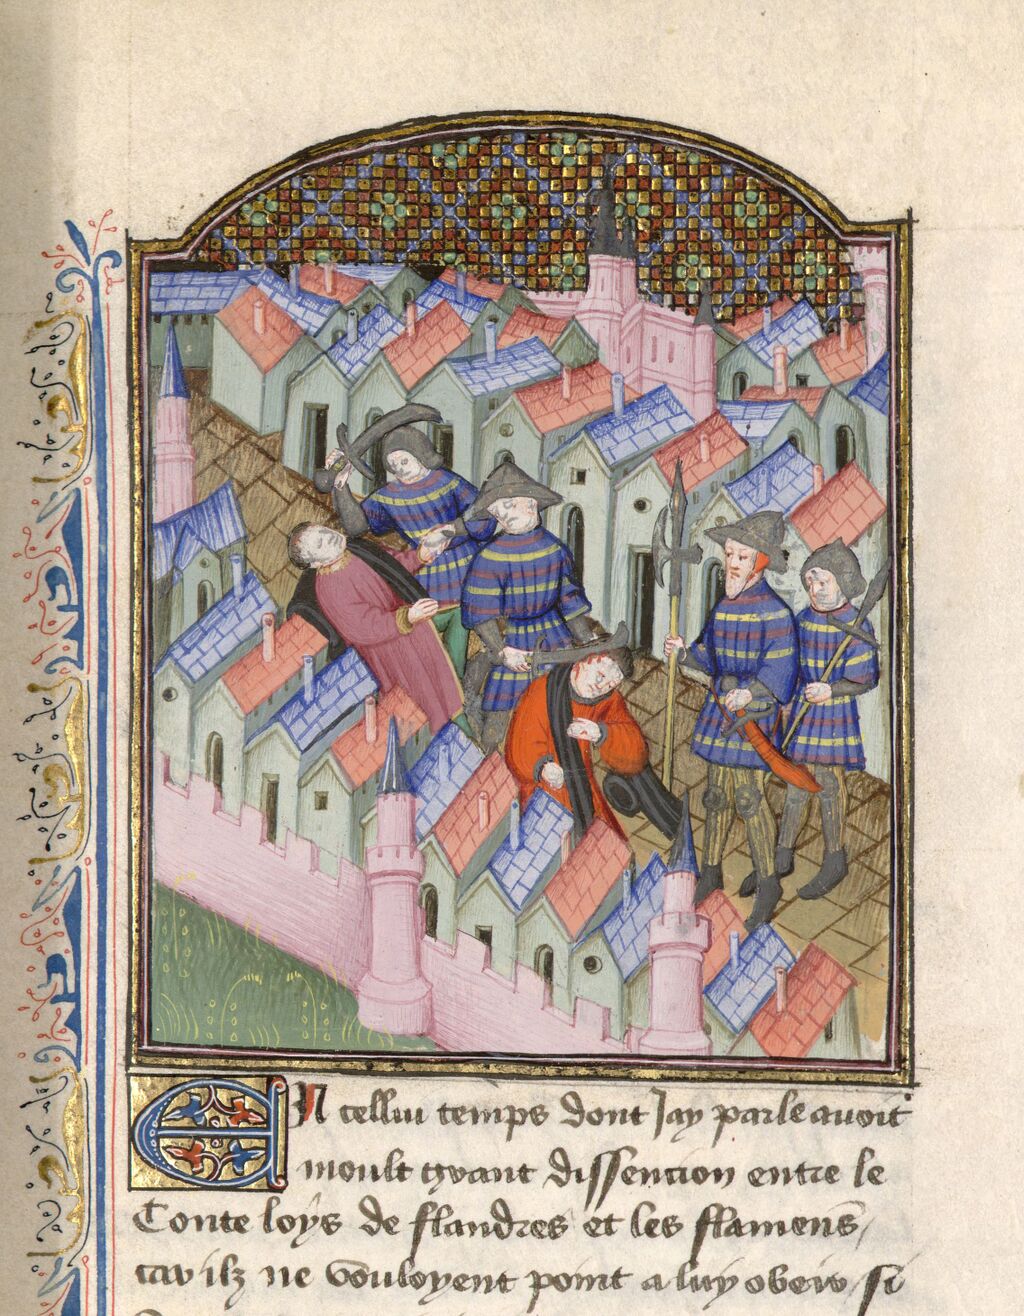 En cellui temps dont Jay parle avoit
moult grant dissencion entre le
Conte loys de flandres et les flamens /
car ilz ne vouloyent point a luy obeir / si